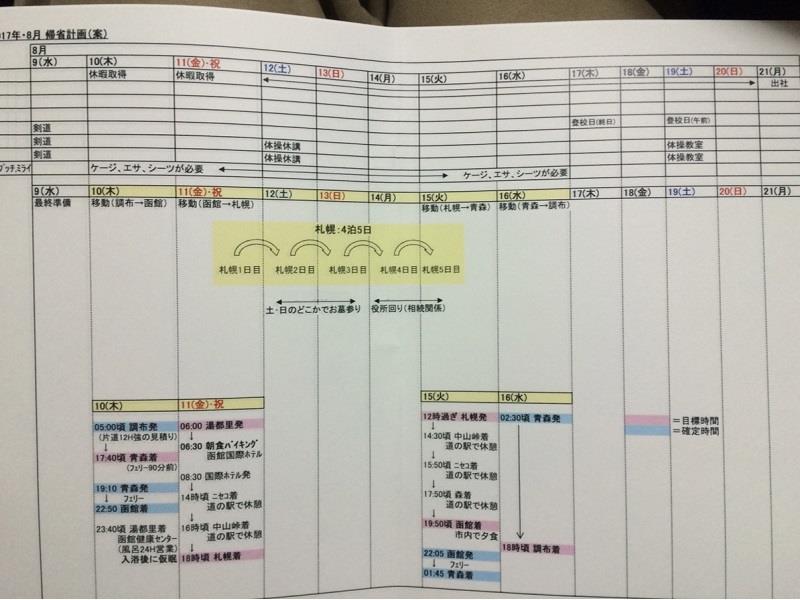 017年・8月 帰省計画(案)
8月
9(水) 10(木) 11(金)・祝 12(土) 13(日) 14(月) 15(火) 16(水) 17(木) 18(金) 19(土) 20(日) 21(月)
休暇取得 休暇取得 出社
登校日(終日) 登校日(午前)
剣道
剣道 体操休講 体操教室
剣道 体操休講 体操教室
ブッチ,ミライ ケージ、エサ、シーツが必要 ケージ、エサ、シーツが必要
9(水) 10(木) 11(金)・祝 12(土) 13(日) 14(月) 15(火) 16(水) 17(木) 18(金) 19(土) 20(日) 21(月)
最終準備 移動(調布→函館) 移動(函館→札幌) 移動(札幌→青森) 移動(青森→調布)
札幌:4泊5日
札幌1日目 札幌2日目 札幌3日目 札幌4日目 札幌5日目
土・日のどこかでお墓参り 役所回り(相続関係)
10(木)
05:00頃 調布発
(片道12H強の見積り)
↓
17:40頃 青森着
(フェリー90分前)
19:10 青森発
↓ フェリー
22:50 函館着
23:40頃 湯都里着
函館健康センター
(風呂24H営業)
入浴後に仮眠
11(金)・祝
06:00 湯都里発
↓
06:30 朝食バイキング
函館国際ホテル
08:30 国際ホテル発
↓
14時頃 ニセコ着
↓ 道の駅で休憩
16時頃 中山峠着
↓ 道の駅で休憩
18時頃 札幌着
15(火)
12時過ぎ 札幌発
↓
14:30頃 中山峠着
↓ 道の駅で休憩
15:50頃 ニセコ着
↓ 道の駅で休憩
17:50頃 森着
↓ 道の駅で休憩
19:50頃 函館着
↓ 市内で夕食
22:05 函館発
↓ フェリー
01:45 青森着
16(水)
02:30頃 青森発
18時頃 調布着
=目標時間
=確定時間